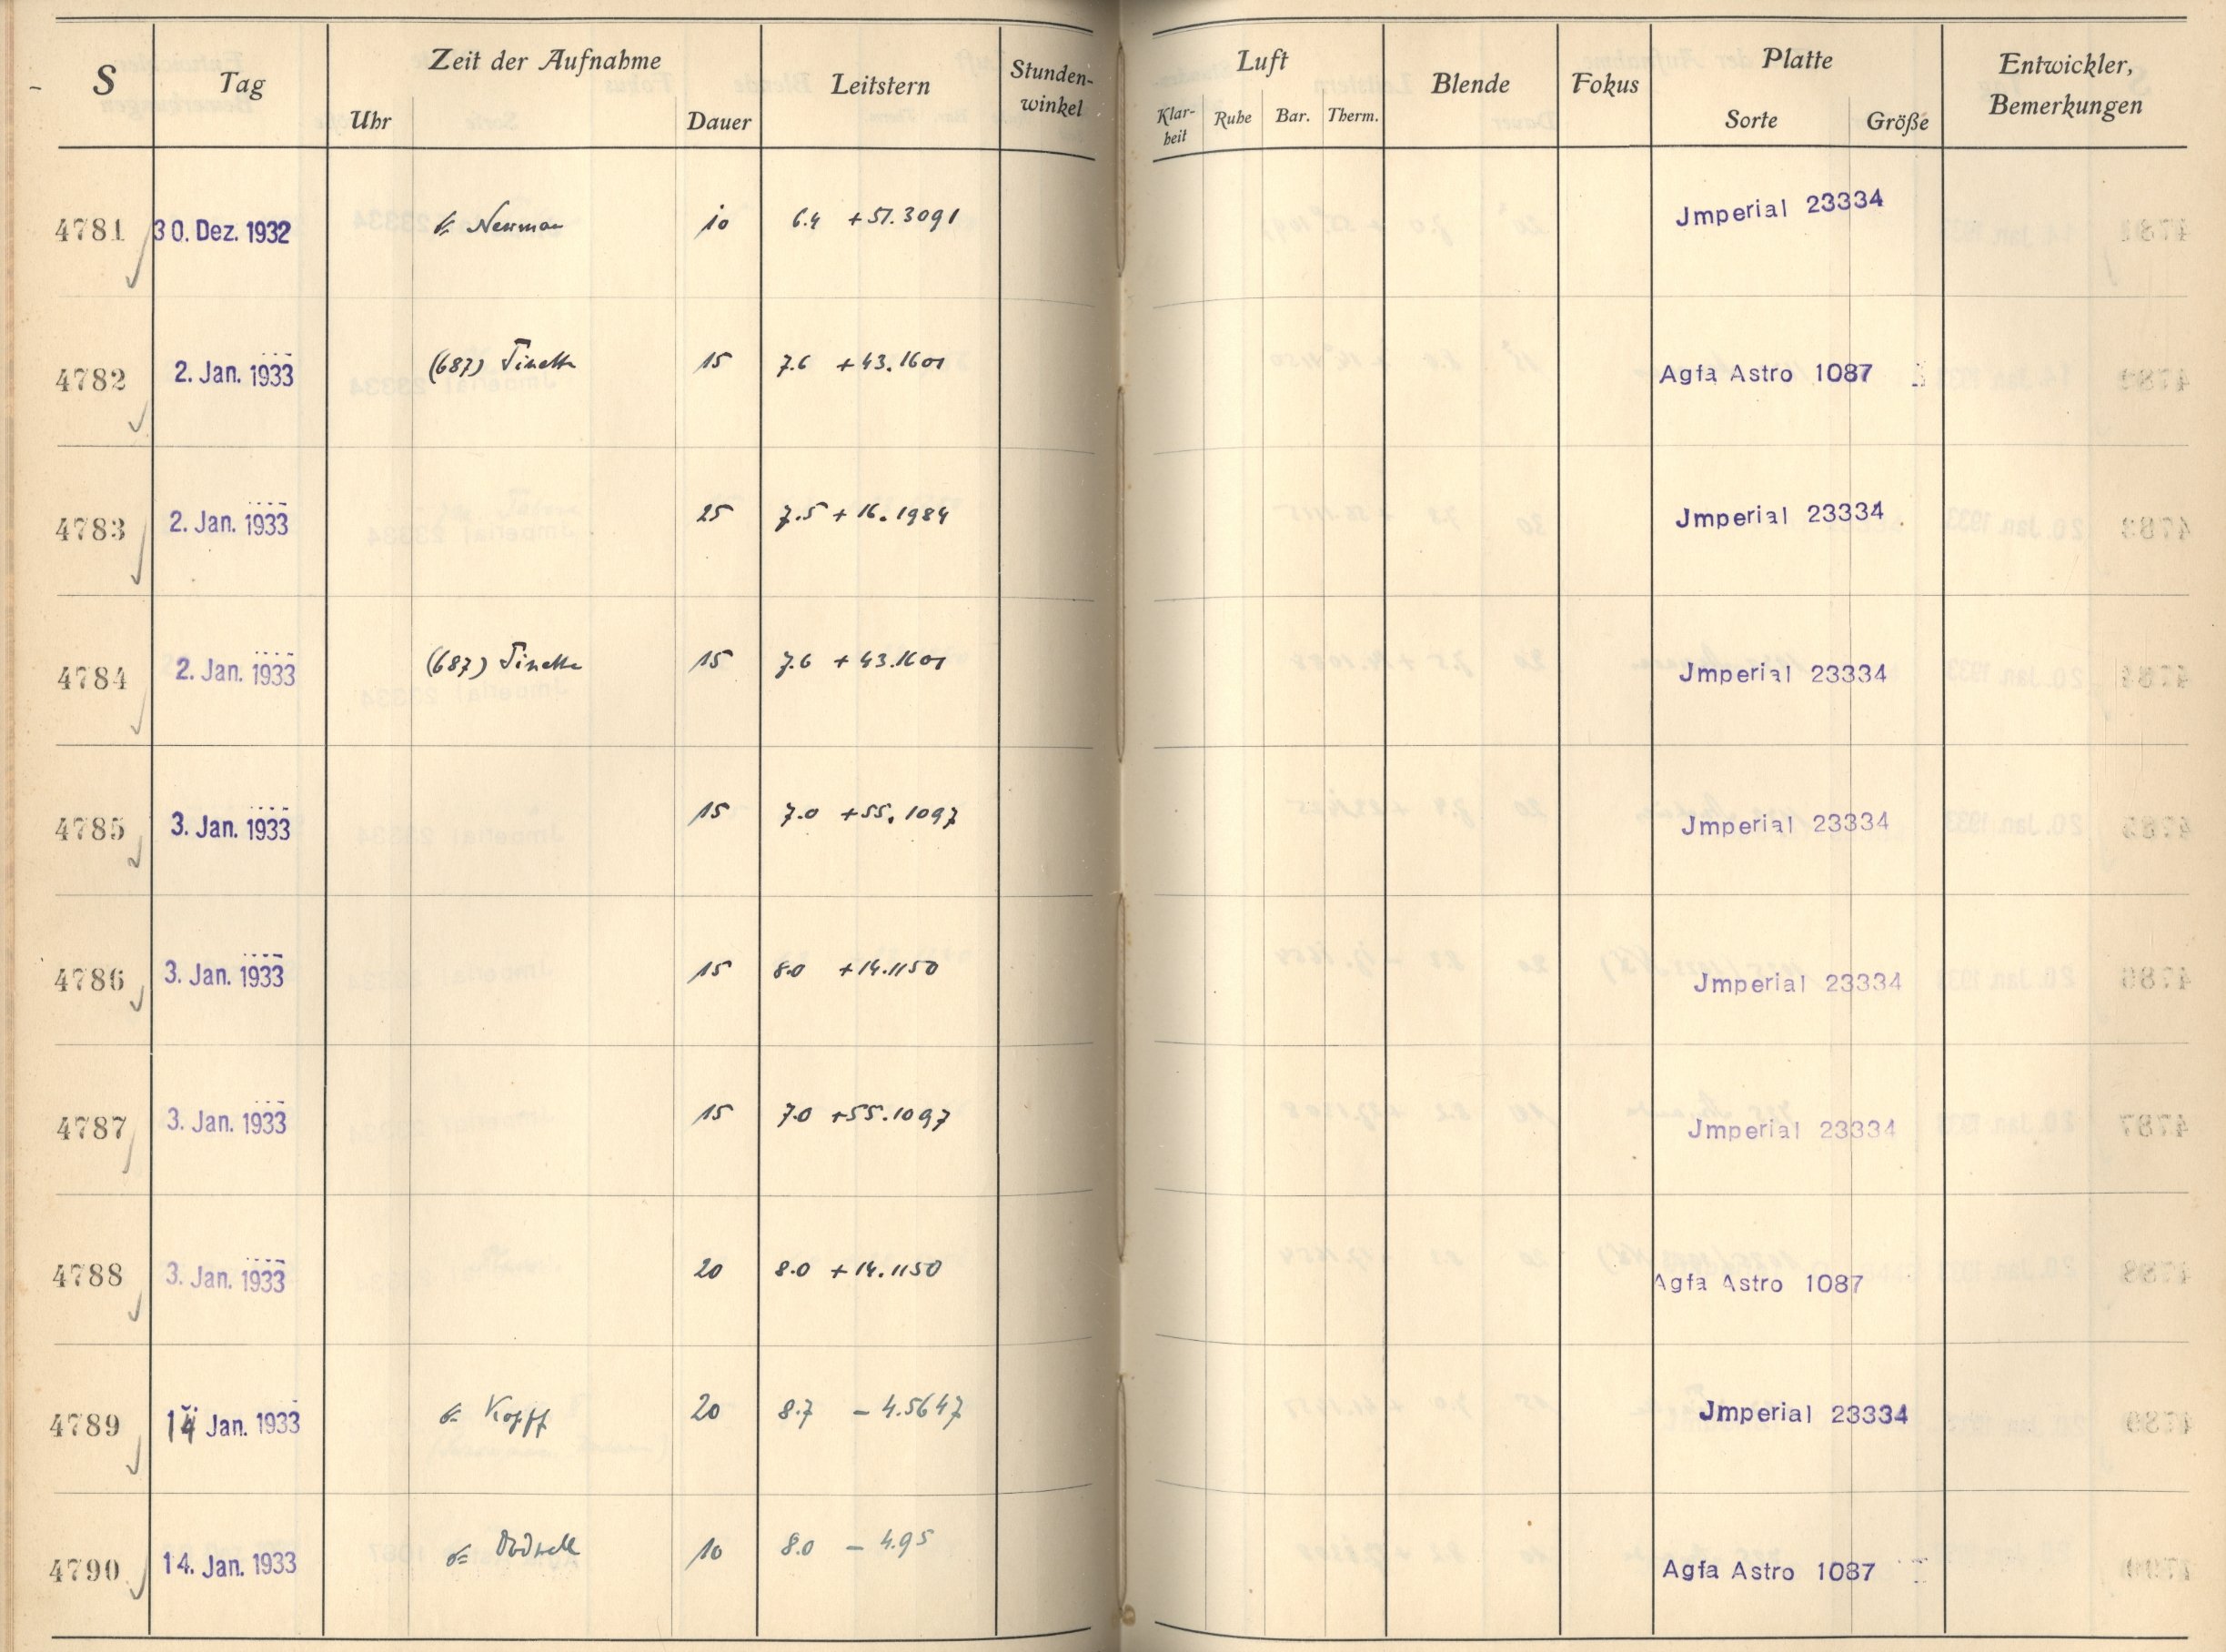 S Tag Zeit der Aufnahme Leitstern Stunden-winkel Luft Blende Fokus Platte Entwickler, Bemerkungen
Uhr Dauer Klar-heit Ruhe Bar. Therm. Sorte Größe
4781 30. Dez. 1932 10 6.4 +51.3091 Jmperial 23334
4782 2. Jan. 1933 (687) Tinette 15 7.6 +43.1601 Agfa Astro 1087
4783 2. Jan. 1933 25 7.5 +16.1984 Jmperial 23334
4784 2. Jan. 1933 (687) Tinette 15 7.6 +43.1601 Jmperial 23334
4785 3. Jan. 1933 15 7.0 +55.1097 Jmperial 23334
4786 3. Jan. 1933 15 8.0 +14.1150 Jmperial 23334
4787 3. Jan. 1933 15 7.0 +55.1097 Jmperial 23334
4788 3. Jan. 1933 20 8.0 +14.1150 Agfa Astro 1087
4789 14 Jan. 1933 Kopff 20 8.7 – 4.5647 Jmperial 23334
4790 14. Jan. 1933 10 8.0 – 4.95 Agfa Astro 1087